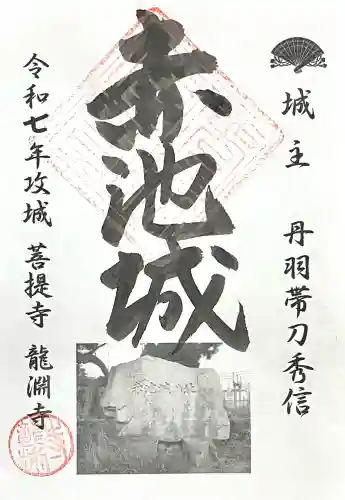 城主 丹羽帯刀秀信
赤池城
令和七年攻城 菩提寺 龍淵寺